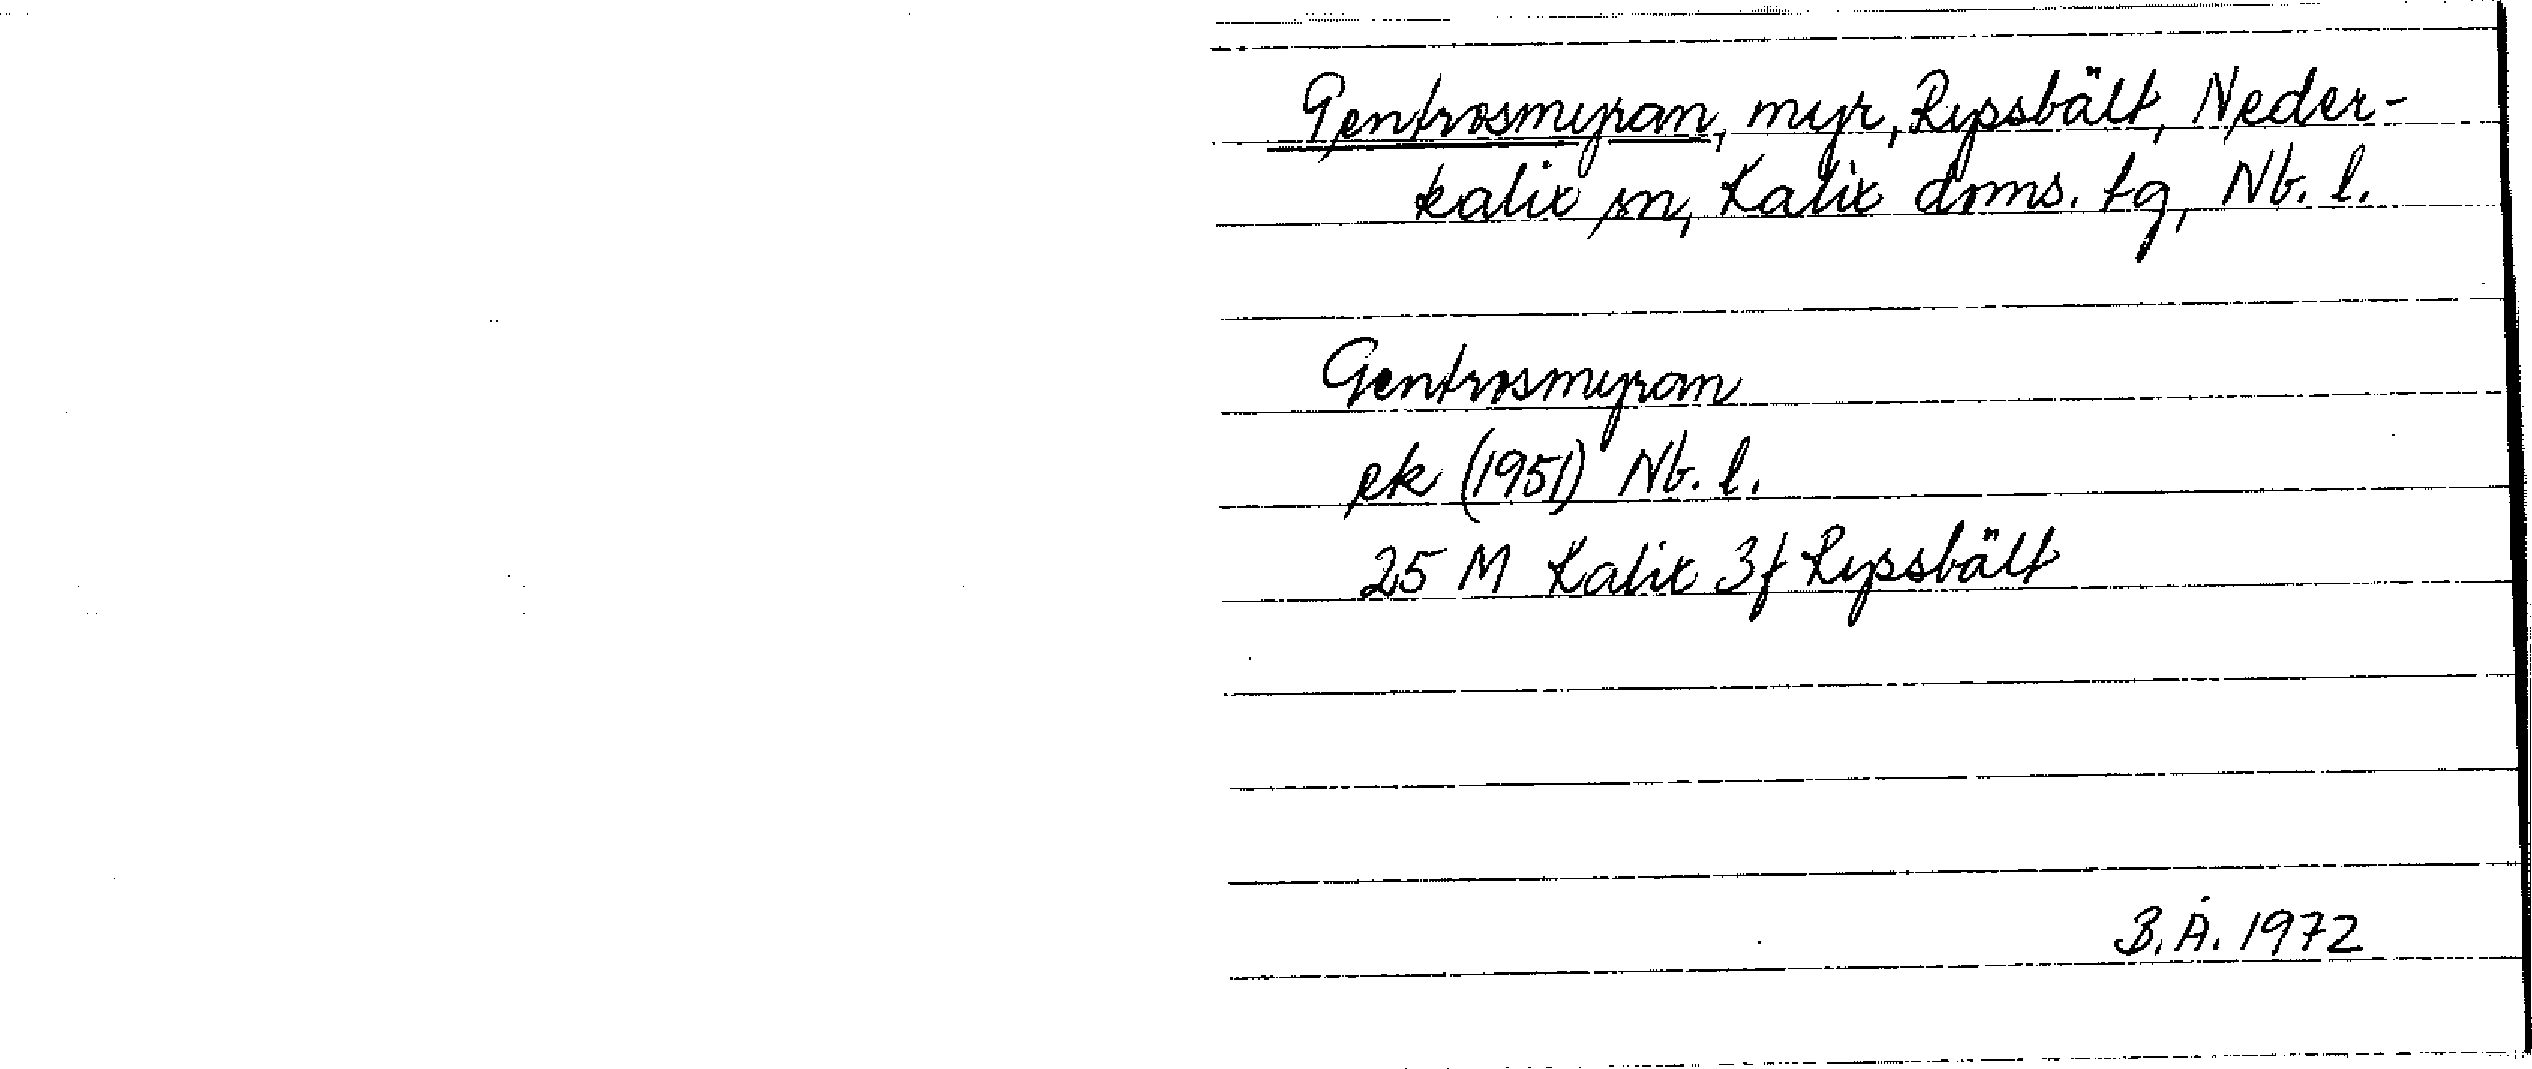 Gentrosmyran, myr, Ryssbält, Neder-
kalix sn, Kalix doms. tg, Nb. l.
Gentrosmyran
ek (1951) Nb. l.
25 M Kalix 3f Ryssbält
B.Å. 1972